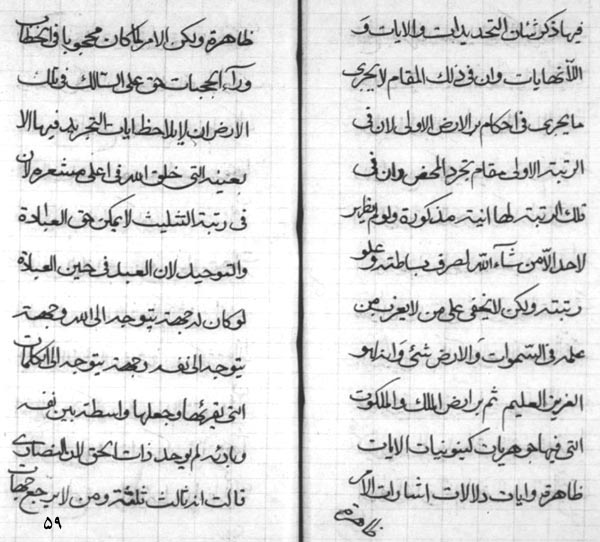 فيها ذكر شئان التحديدات والايات و
اللانهايات وان فى ذلك المقام لايجرى
ما يجرى فى احكام بر الارض الاولى لان فى
الرتبة الاولى مقام تجرد المحض وان فى
تلك الرتبة لها انية مذكورة ولو لم يظهر
لاحد الا من شآء الله لصرف بساطته وعلو
رتبته ولكن لايخفى على من لايعزب من
علمه فى السموات والارض شئ وانه لهو
العزيز العليم ثم بر ارض الملك والملكوت
التى فيها جوهريات كينونيات الايات
ظاهرة وايات دلالات اشارات الامر
ظاهرة
ظاهرة ولكن الامر لما كان محجوبا فى الخطاب
ورآء الحجبات حق على السالك فى تلك
الارض ان لا يلاحظ ايات التجريد فيها الا
بعينه التى خلق الله فى اعلى مشعره لان
فى رتبة التثليث لايمكن حق العبادة
والتوحيد لان العبد فى حين العبادة
لو كان له جهة يتوجه الى الله وجهة
يتوجه الى نفسه وجهة يتوجه الى الكلمات
التى يقرئها وجعلها واسطة بين نفسه
وبارئه لم يوحد ذات الحق لان النصارى
قالت انه ثالث ثلثة ومن لا يرجع جهات
٥٩